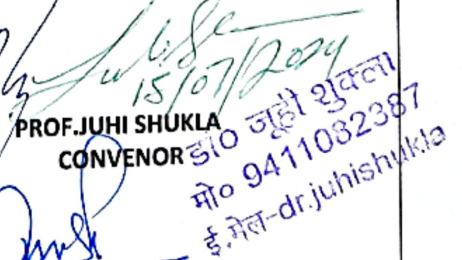 15/07/2024
PROF.JUHI SHUKLA
CONVENOR
डा० जूही शुक्ला
मो० 9411032387
ई.मेल-dr.juhishukla